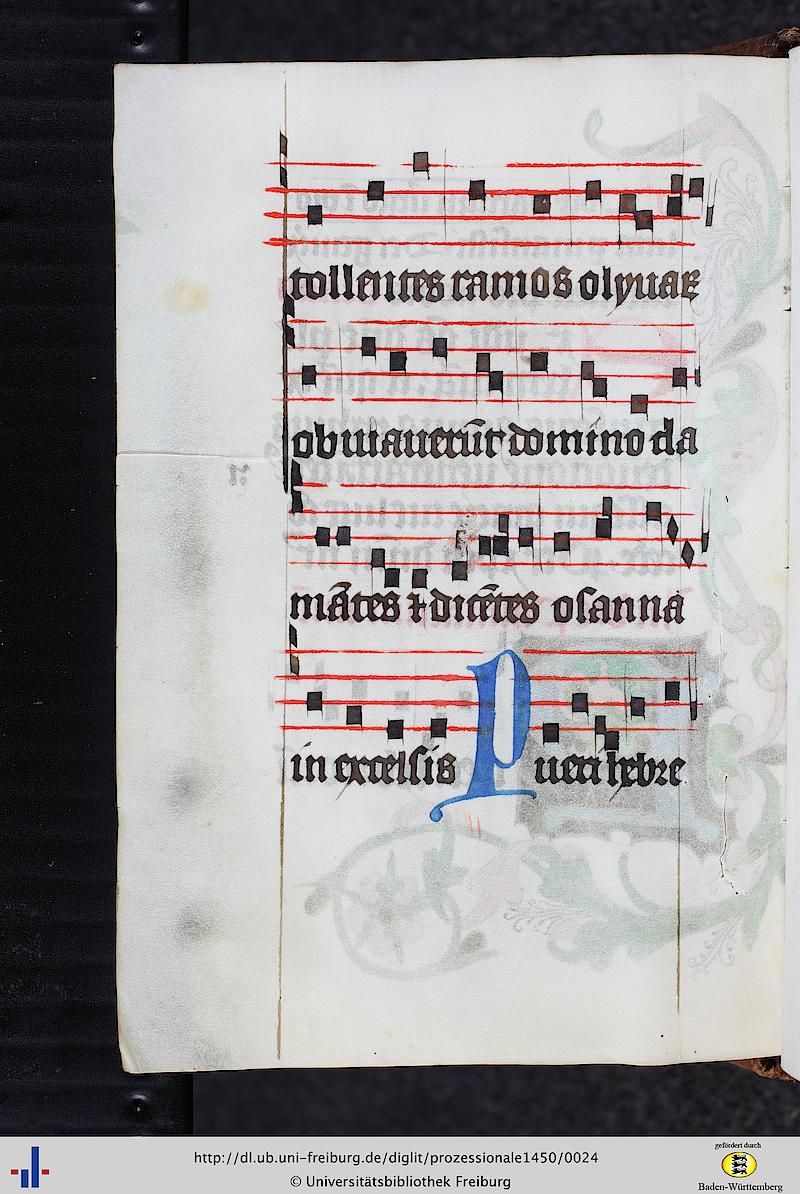 tollentes ramos olyuaꝝ
obuiauerūt domino cla
mātes ⁊ dicētes osanna
in excelsis Pueri hebre
http://dl.ub.uni-freiburg.de/diglit/prozessionale1450/0024
© Universitätsbibliothek Freiburg
gefördert durch
Baden-Württemberg